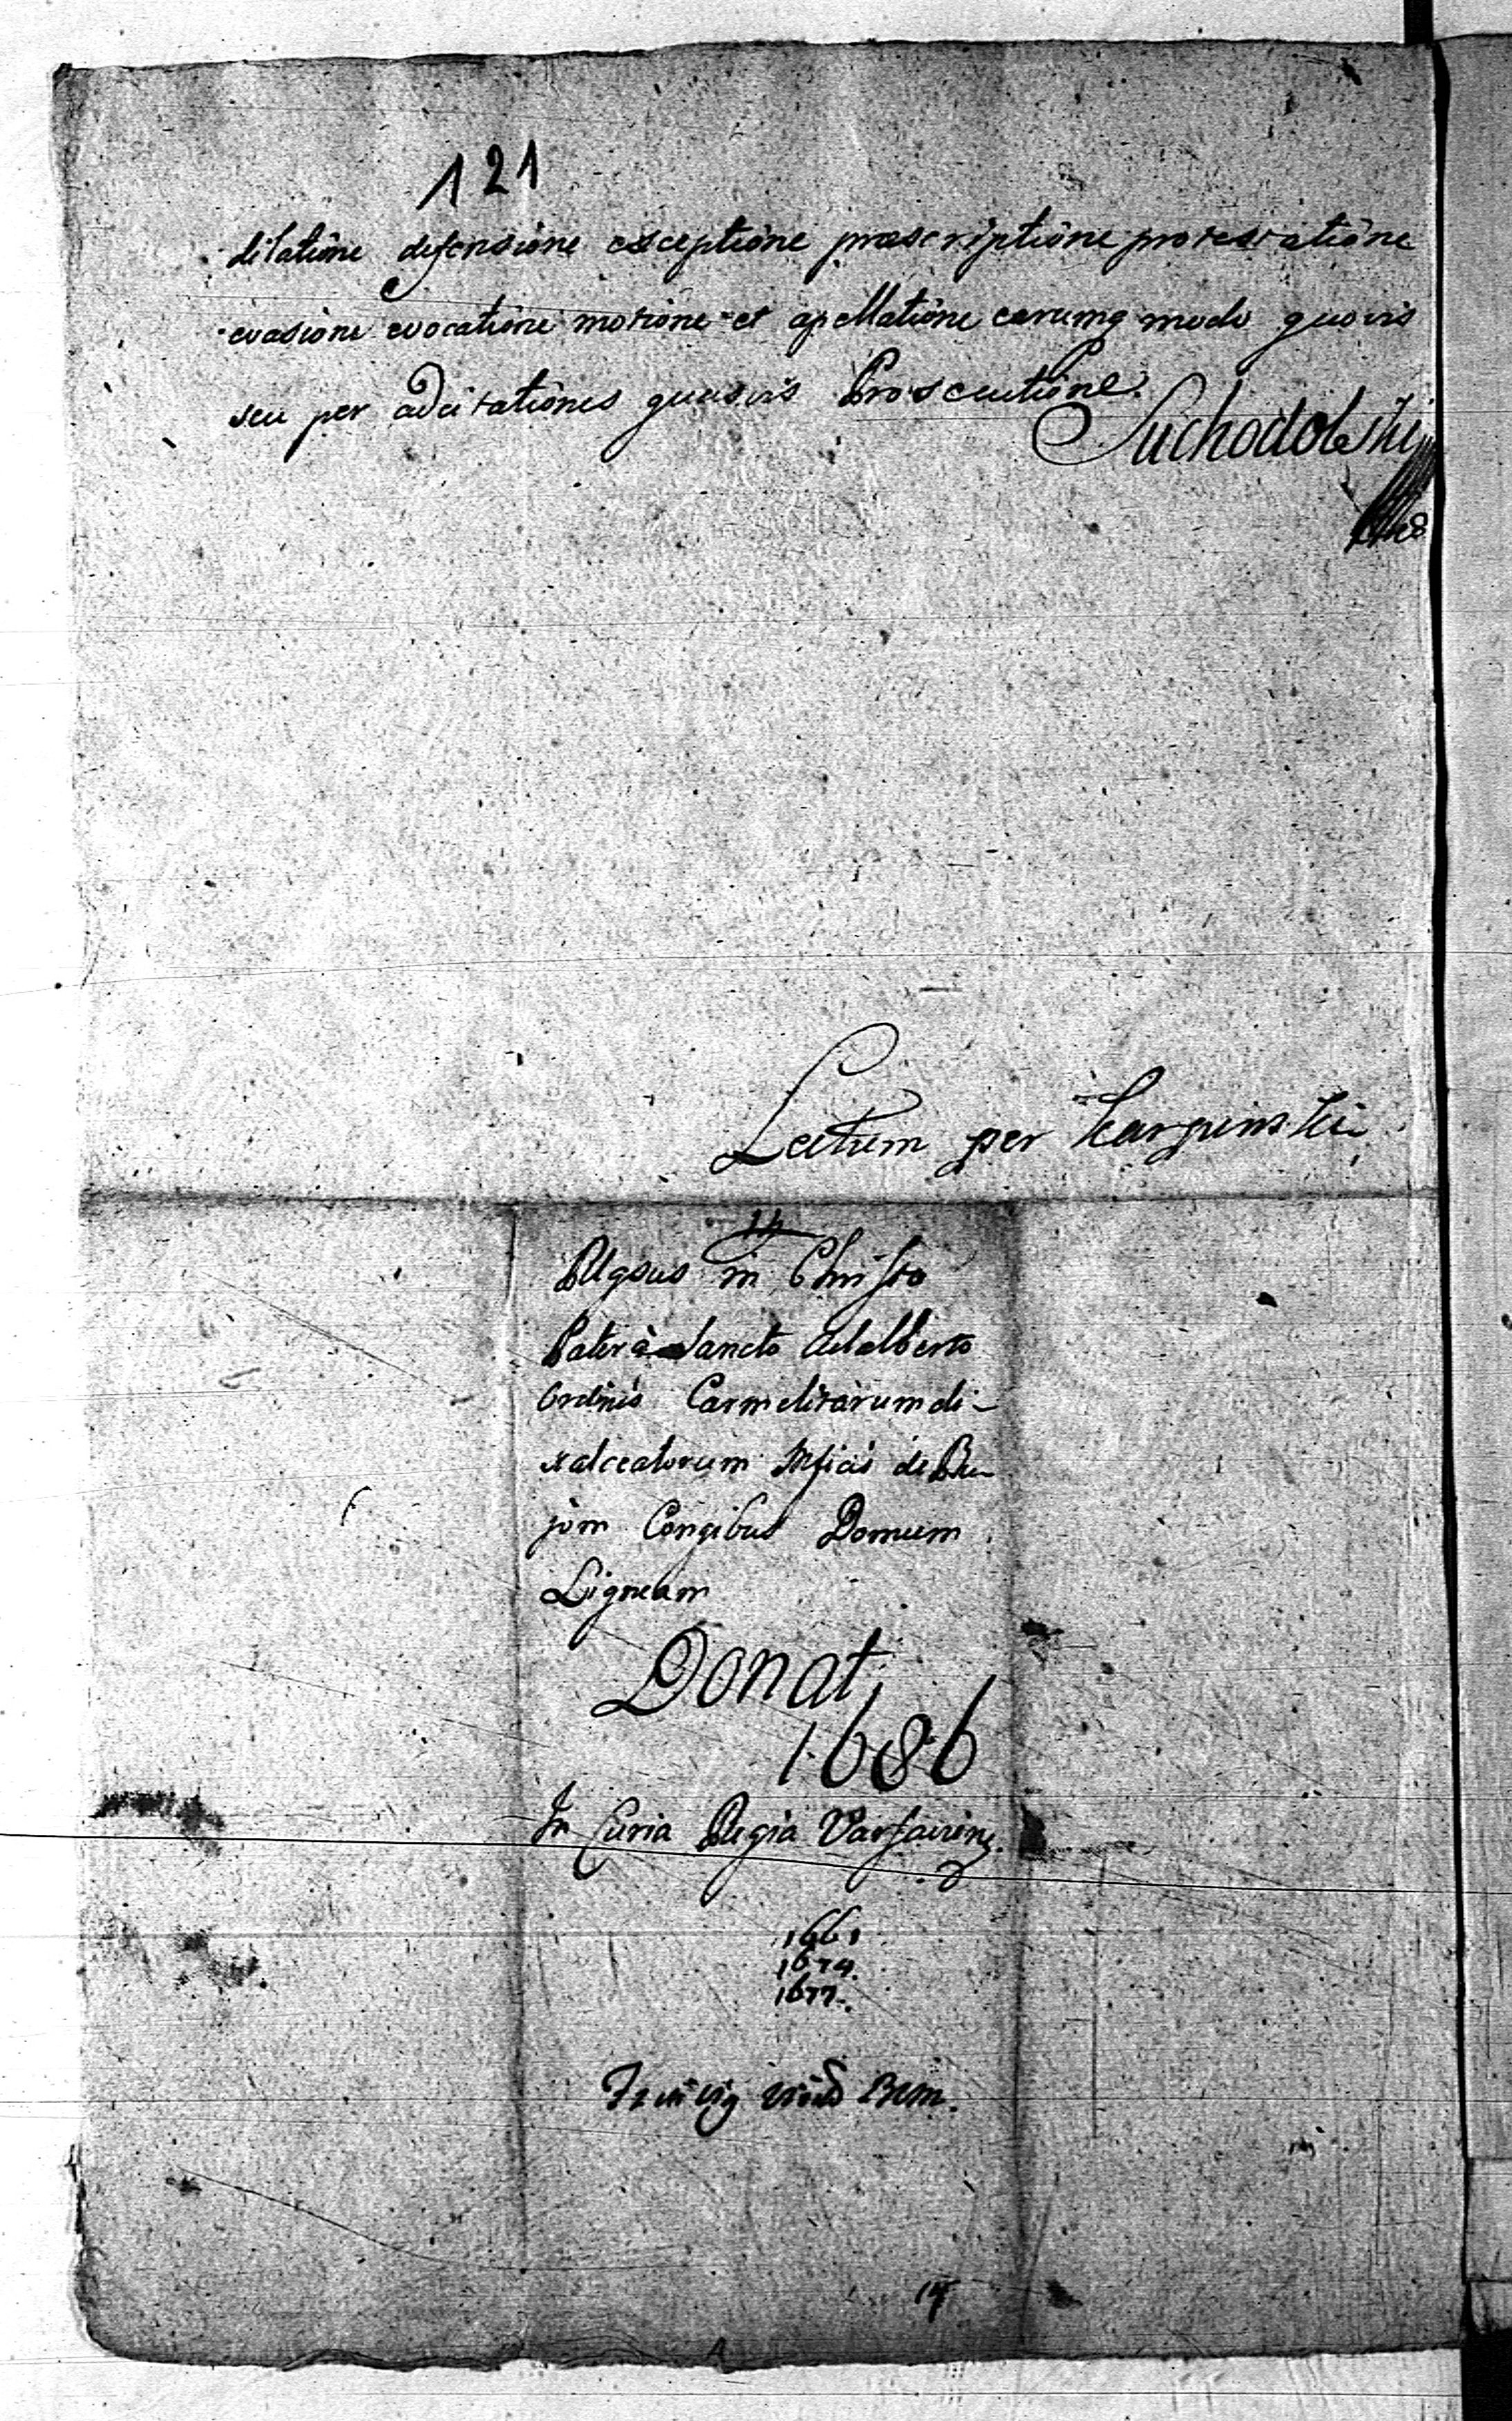 121
dilatione defensione exceptione præscriptione protestatione
evasione evocatione motione et apellatione earumq modo quovis
seu per adcitationes quasvis Prosecutione.
Suchodolski
Lectum per Karpinski
14
Rlgsus in Christo
Pater à Sancto Adalberto
Ordinis Carmelitarum di-
xalceatorum Mficis de Bu-
jom Congibus Domum
Ligneam
Donat
1686
In Curia Regia Varsavien.
1661
1674.
1677.
14